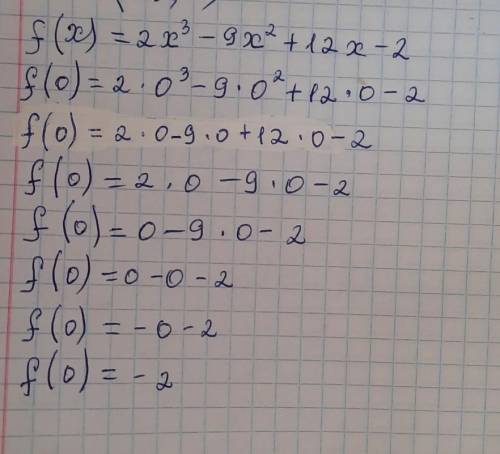 f(x) = 2x³ - 9x² + 12x - 2
f(0) = 2 · 0³ - 9 · 0² + 12 · 0 - 2
f(0) = 2 · 0 - 9 · 0 + 12 · 0 - 2
f(0) = 2 · 0 - 9 · 0 - 2
f(0) = 0 - 9 · 0 - 2
f(0) = 0 - 0 - 2
f(0) = - 0 - 2
f(0) = - 2